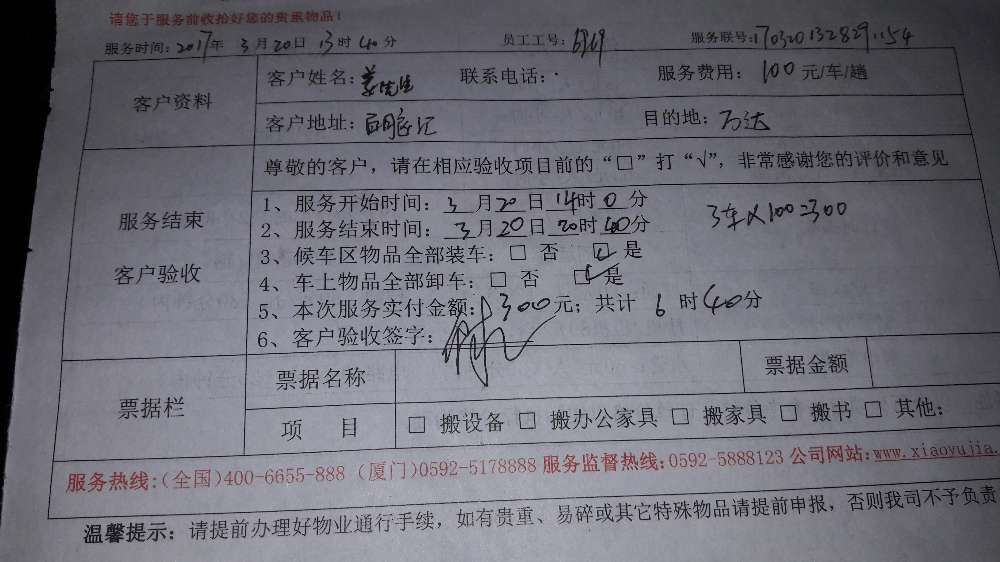 请您于服务前收拾好您的贵重物品!
服务时间: 2017年 3月20日 13时40分 员工工号: 6969 服务联号: 1703201328291154
客户资料
客户姓名: 姜先生 联系电话: 服务费用: 100 元/车/趟
客户地址: 目的地: 万达
服务结束
客户验收
尊敬的客户,请在相应验收项目前的“□”打“√”,非常感谢您的评价和意见
1、服务开始时间: 3月20日14时0分
2、服务结束时间: 3月20日20时40分
3车X100=300
3、候车区物品全部装车: □ 否 ☑ 是
4、车上物品全部卸车: □ 否 ☑ 是
5、本次服务实付金额: 300元; 共计 6 时40分
6、客户验收签字:
票据栏
票据名称 票据金额
项 目 □ 搬设备 □ 搬办公家具 □ 搬家具 □ 搬书 □ 其他:
服务热线:(全国)400-6655-888 (厦门)0592-5178888 服务监督热线:0592-5888123 公司网站:www.xiaoyujia.
温馨提示: 请提前办理好物业通行手续,如有贵重、易碎或其它特殊物品请提前申报,否则我司不予负责